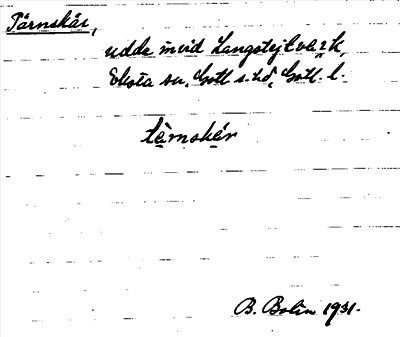 Tärnskär,
udde invid Langstejkvark
Eksta sn, Gotl s. hd, Gotl. l.
tärnskär
B. Bolin 1931.